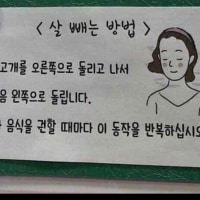 < 살 빼는 방법 >
고개를 오른쪽으로 돌리고 나서
음 왼쪽으로 돌립니다.
음식을 권할 때마다 이 동작을 반복하십시오